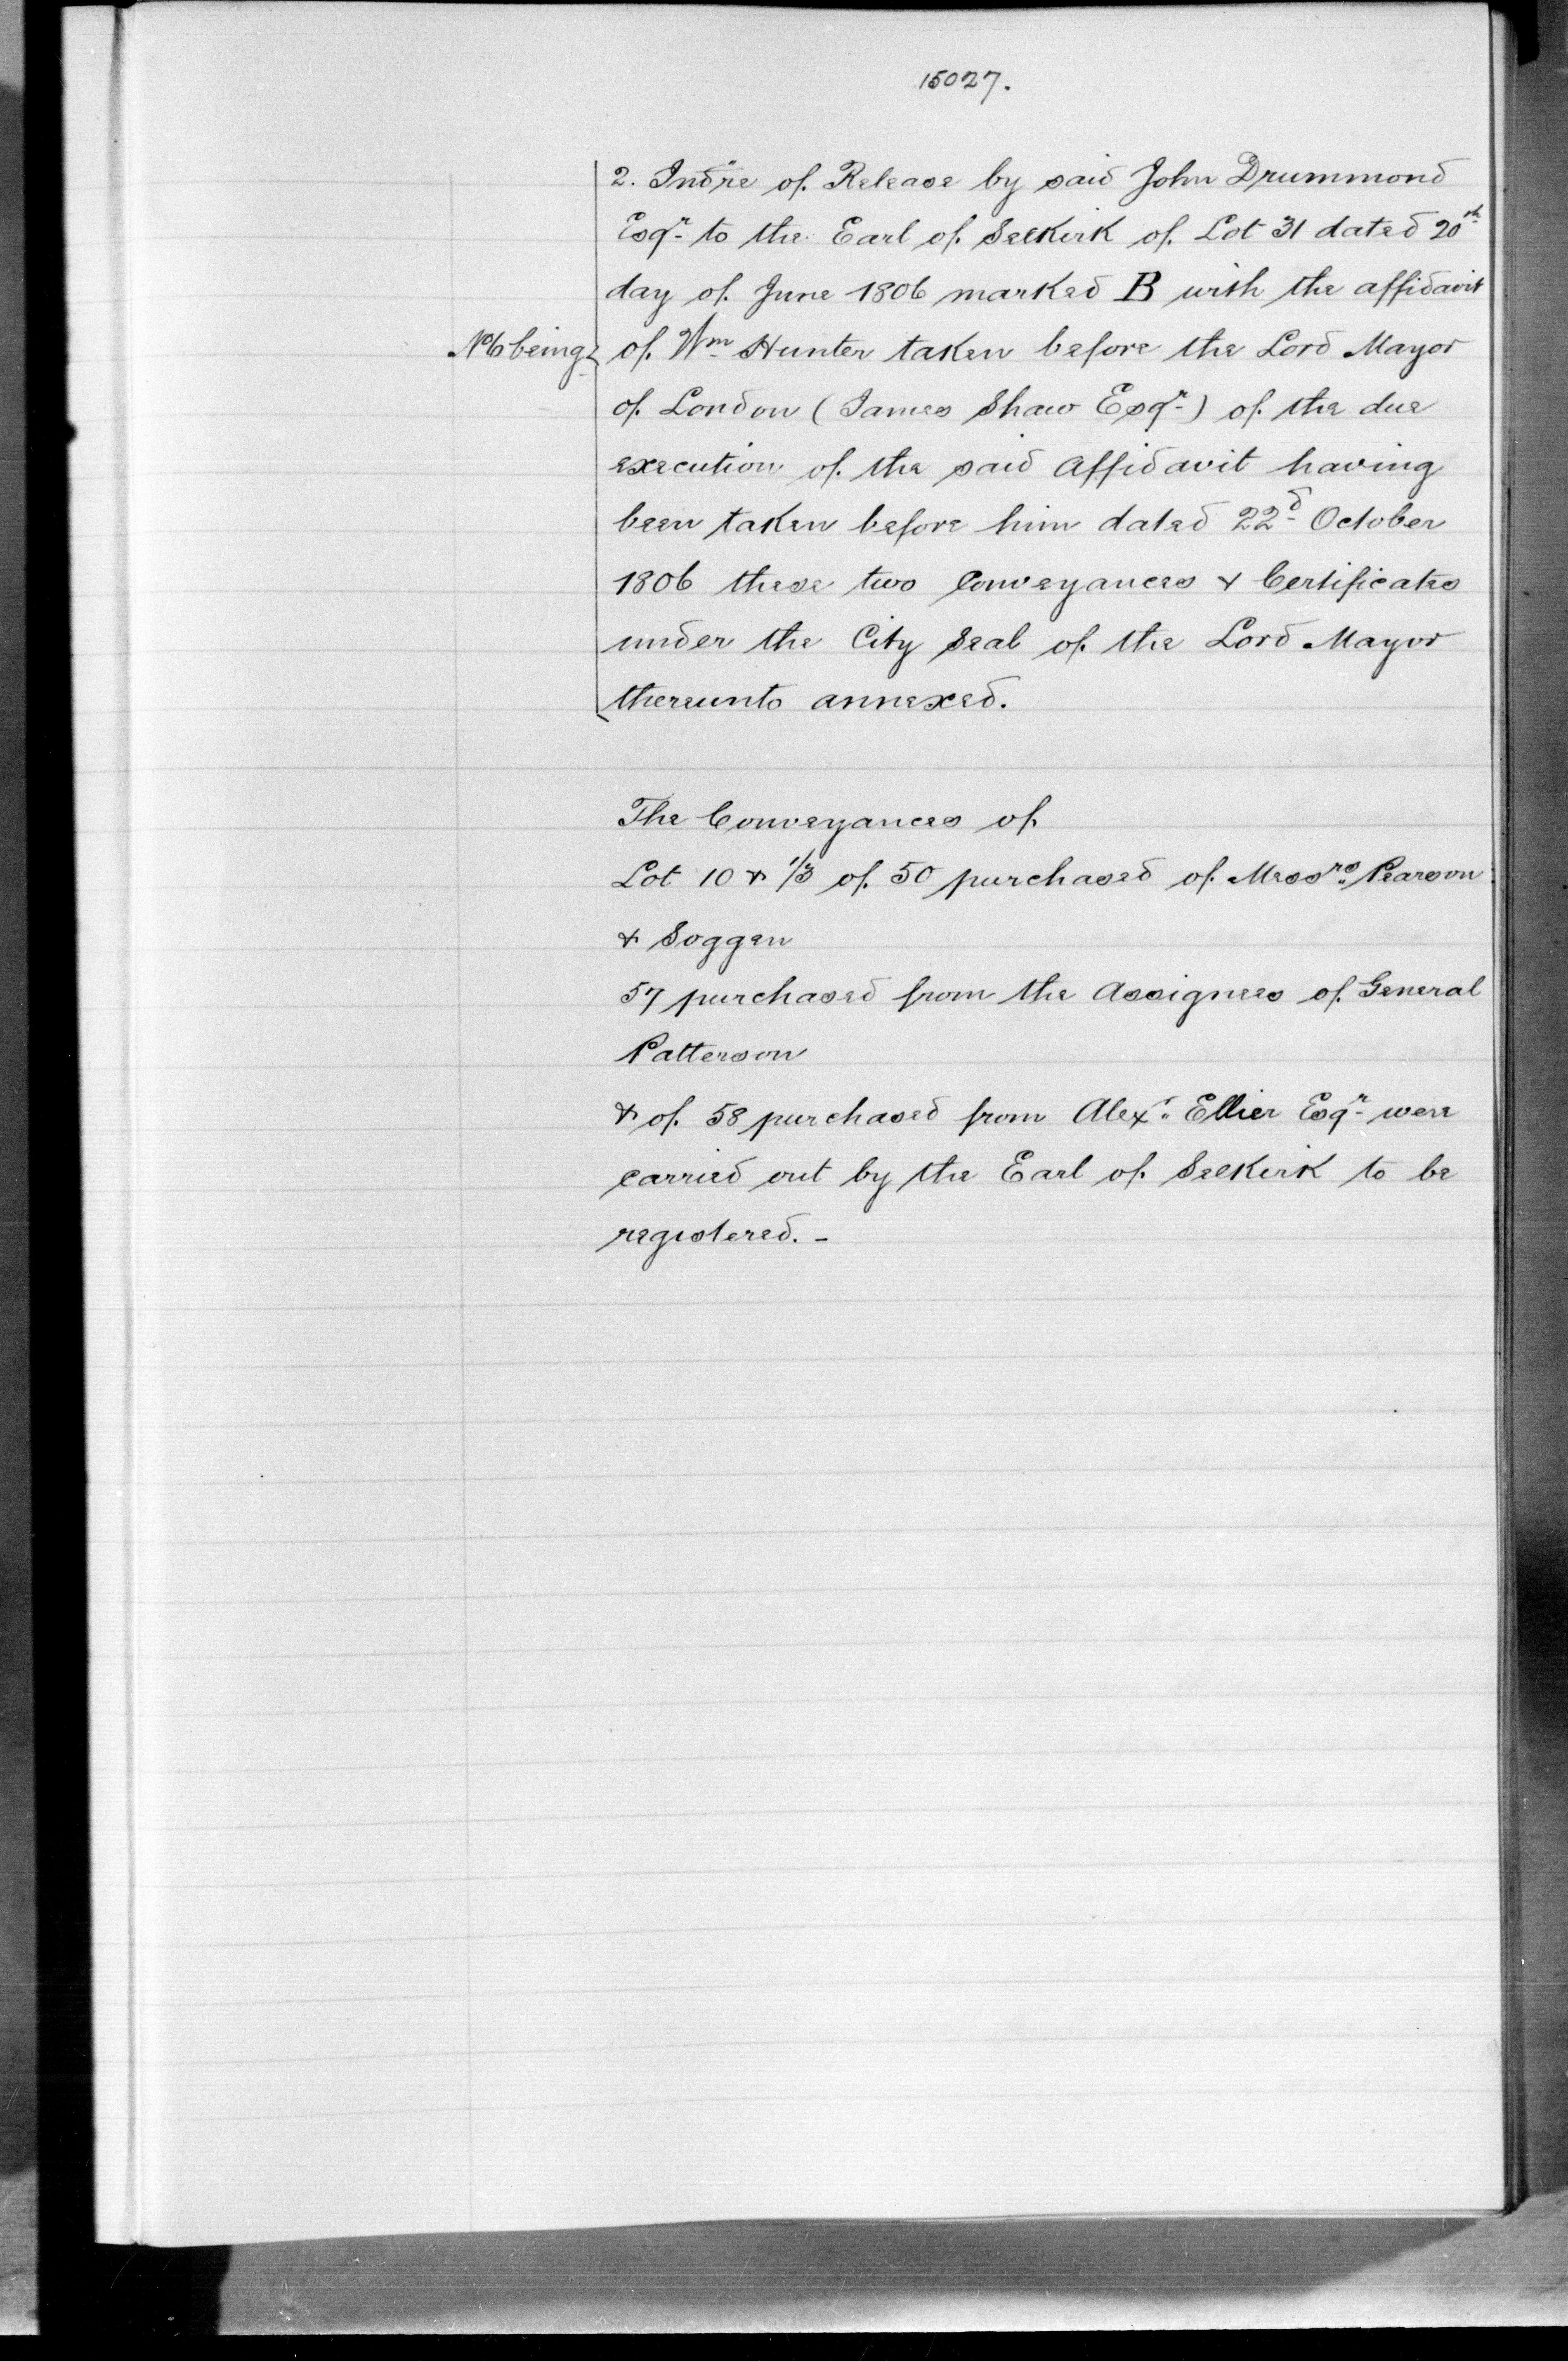 15027.
2. Indre of Release by said John Drummond
Esqr to the Earl of Selkirk of Lot 31 dated 20th
day of June 1806 marked B with the affidavit
No 6 being of Wm Hunter taken before the Lord Mayor
of London (James Shaw Esqr) of the due
execution of the said Affidavit having
been taken before him dated 22d October
1806 these two Conveyances & Certificates
under the City Seal of the Lord Mayor
thereunto annexed.
The Conveyances of
Lot 10 & 1/3 of 50 purchased of Messrs Pearson
& Soggen
57 purchased from the Assignees of General
Patterson
& of 58 purchased from Alexr Ellier Esqr were
carried out by the Earl of Selkirk to be
registered. -